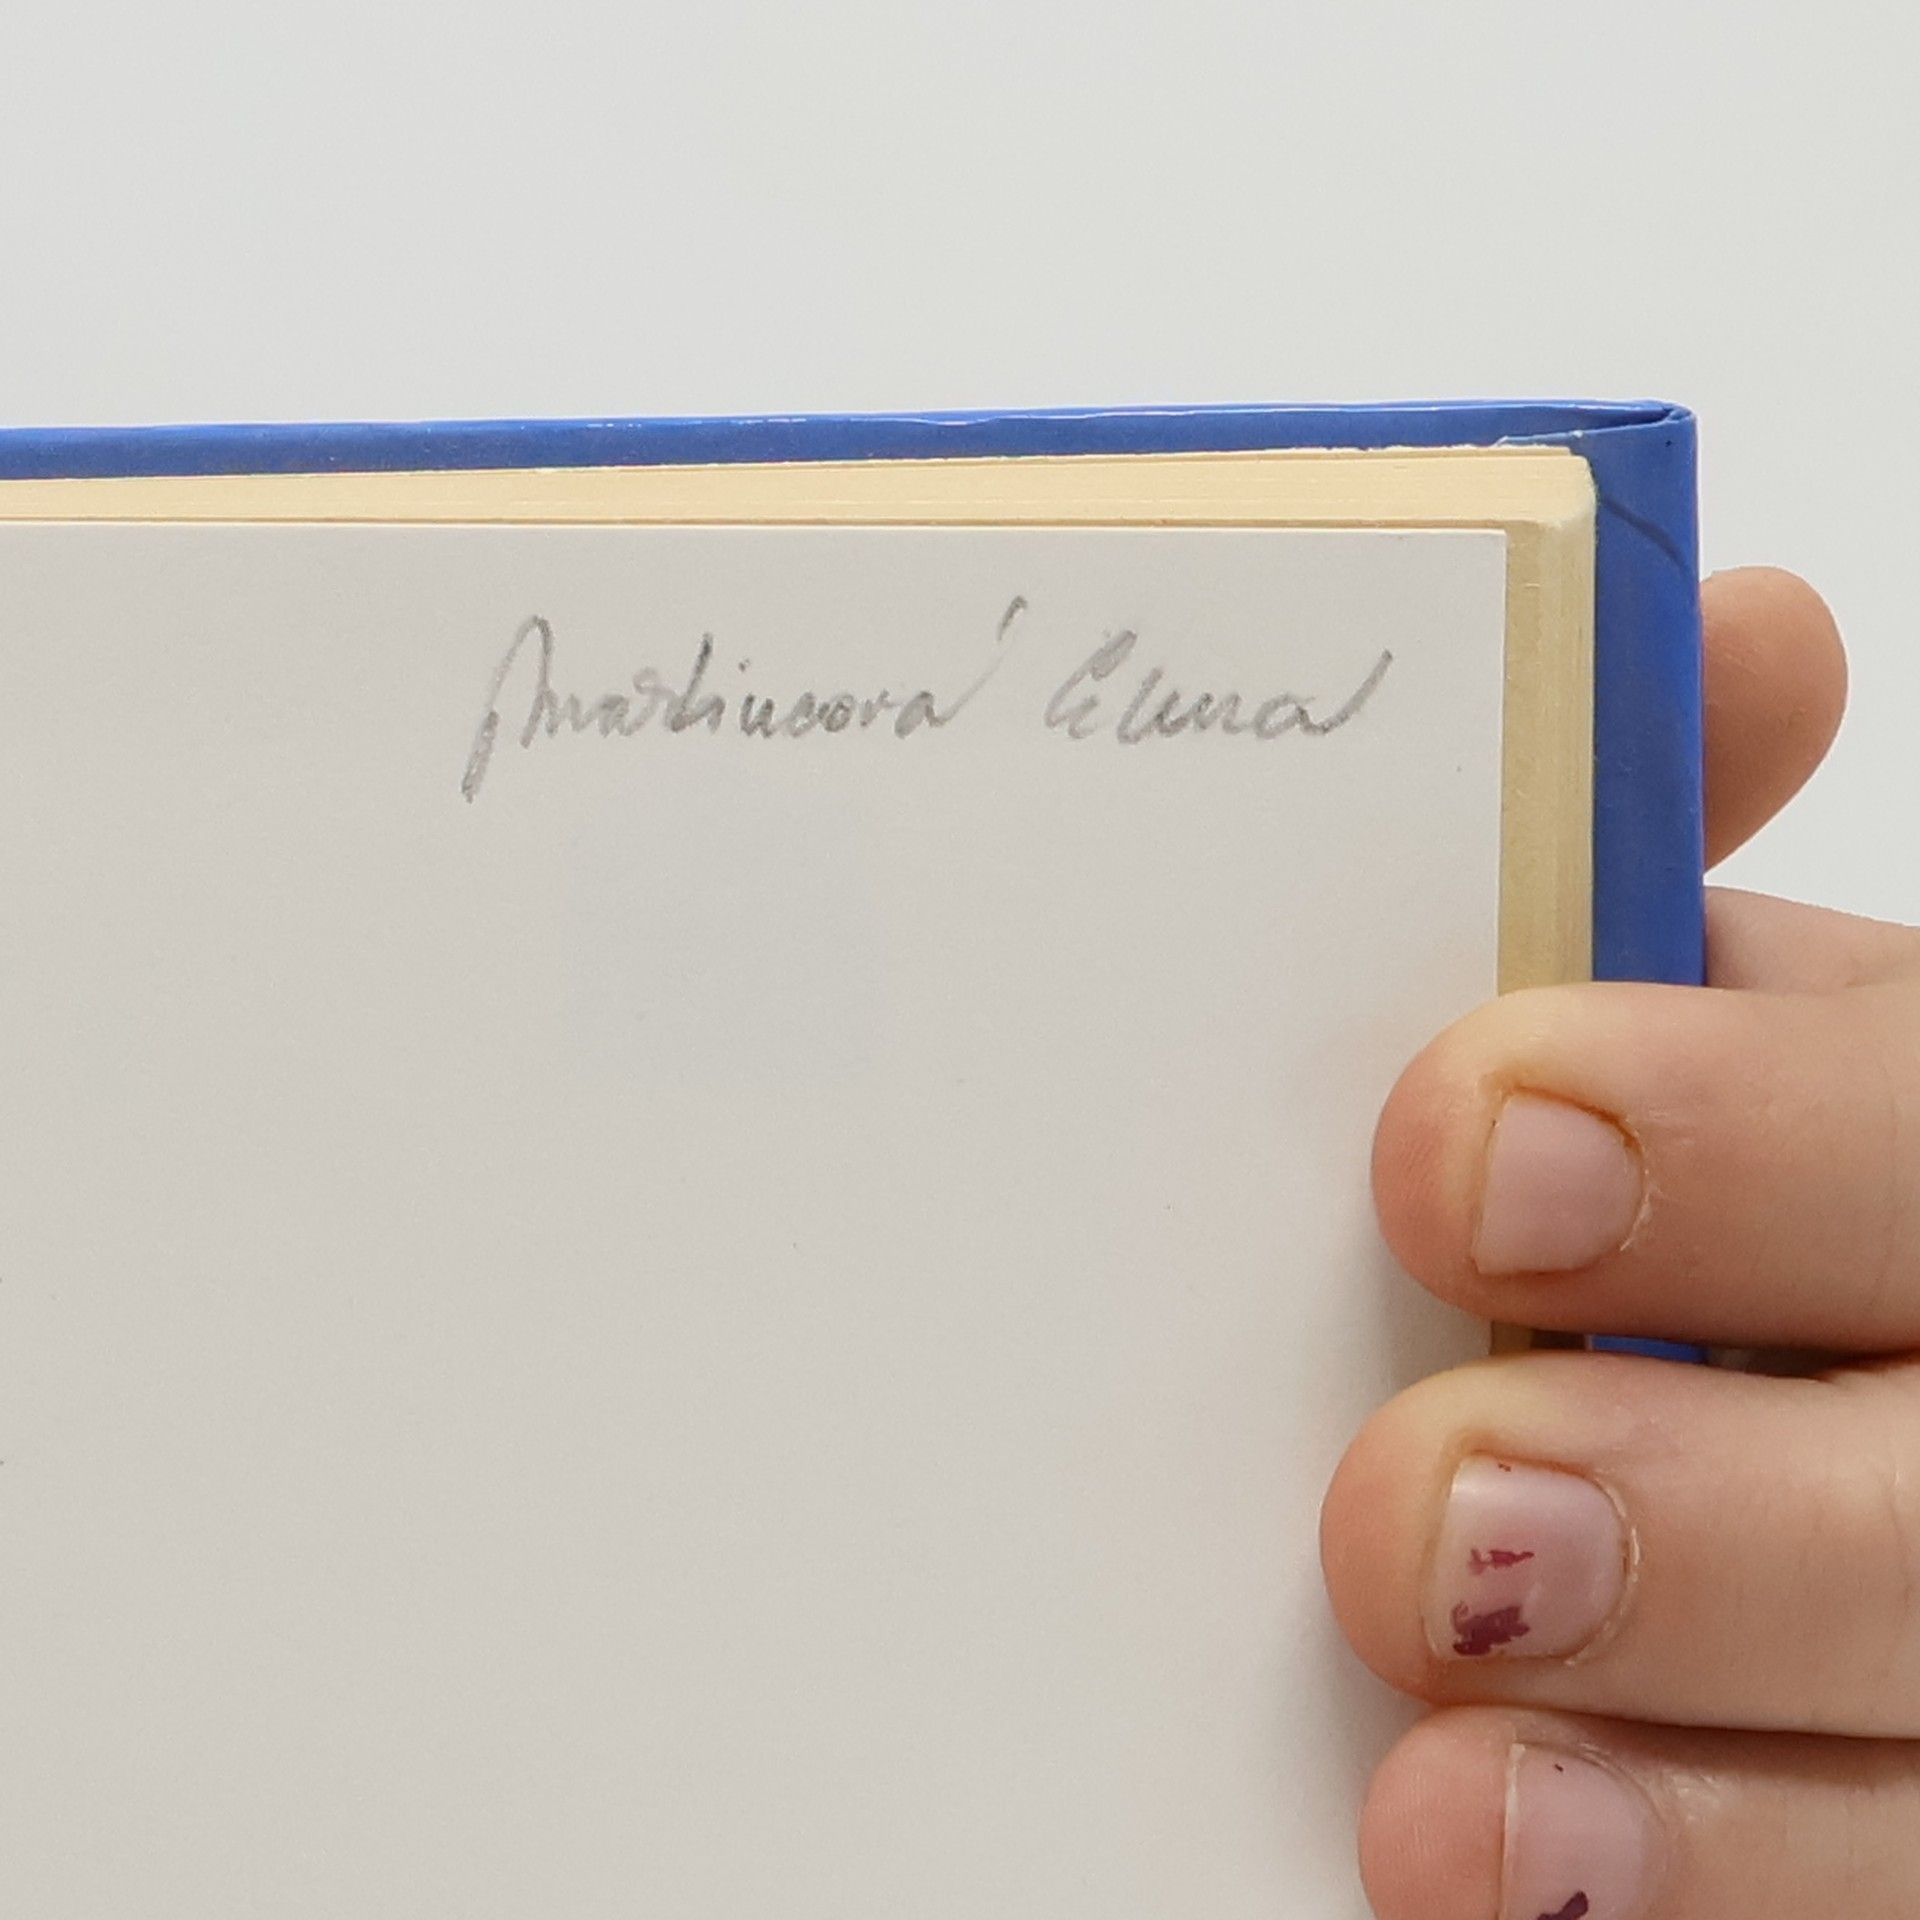 Martincová Elena